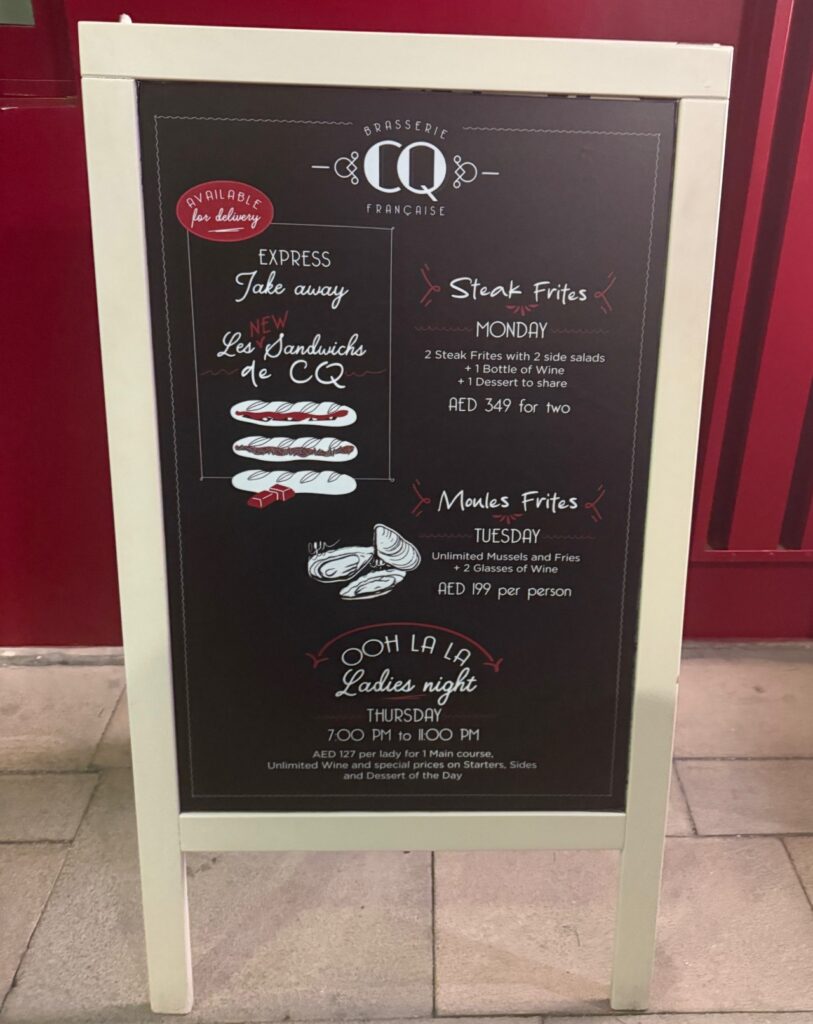 BRASSERIE
CQ
FRANÇAISE
AVAILABLE
for delivery
EXPRESS
Take away
NEW
Les Sandwichs
de CQ
Steak Frites
MONDAY
2 Steak Frites with 2 side salads
+ 1 Bottle of Wine
+ 1 Dessert to share
AED 349 for two
Moules Frites
TUESDAY
Unlimited Mussels and Fries
+ 2 Glasses of Wine
AED 199 per person
OOH LA LA
Ladies night
THURSDAY
7:00 PM to 11:00 PM
AED 127 per lady for 1 Main course,
Unlimited Wine and special prices on Starters, Sides
and Dessert of the Day